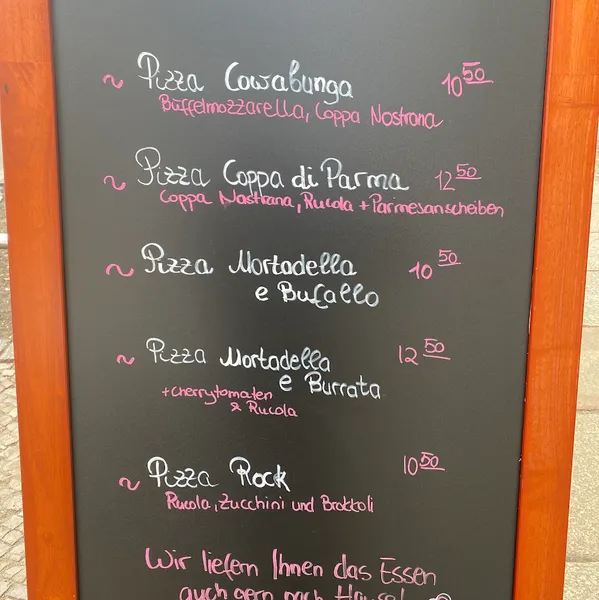 ~ Pizza Cowabunga 10 50
Büffelmozzarella, Coppa Nostrana
~ Pizza Coppa di Parma 12 50
Coppa Nastrana, Rucola + Parmesanscheiben
~ Pizza Mortadella 10 50
e Bufallo
~ Pizza Mortadella 12 50
e Burrata
+ Cherrytomaten
& Rucola
~ Pizza Rock 10 50
Rucola, Zucchini und Brokkoli
Wir liefern Ihnen das Essen
auch gern nach Hause!